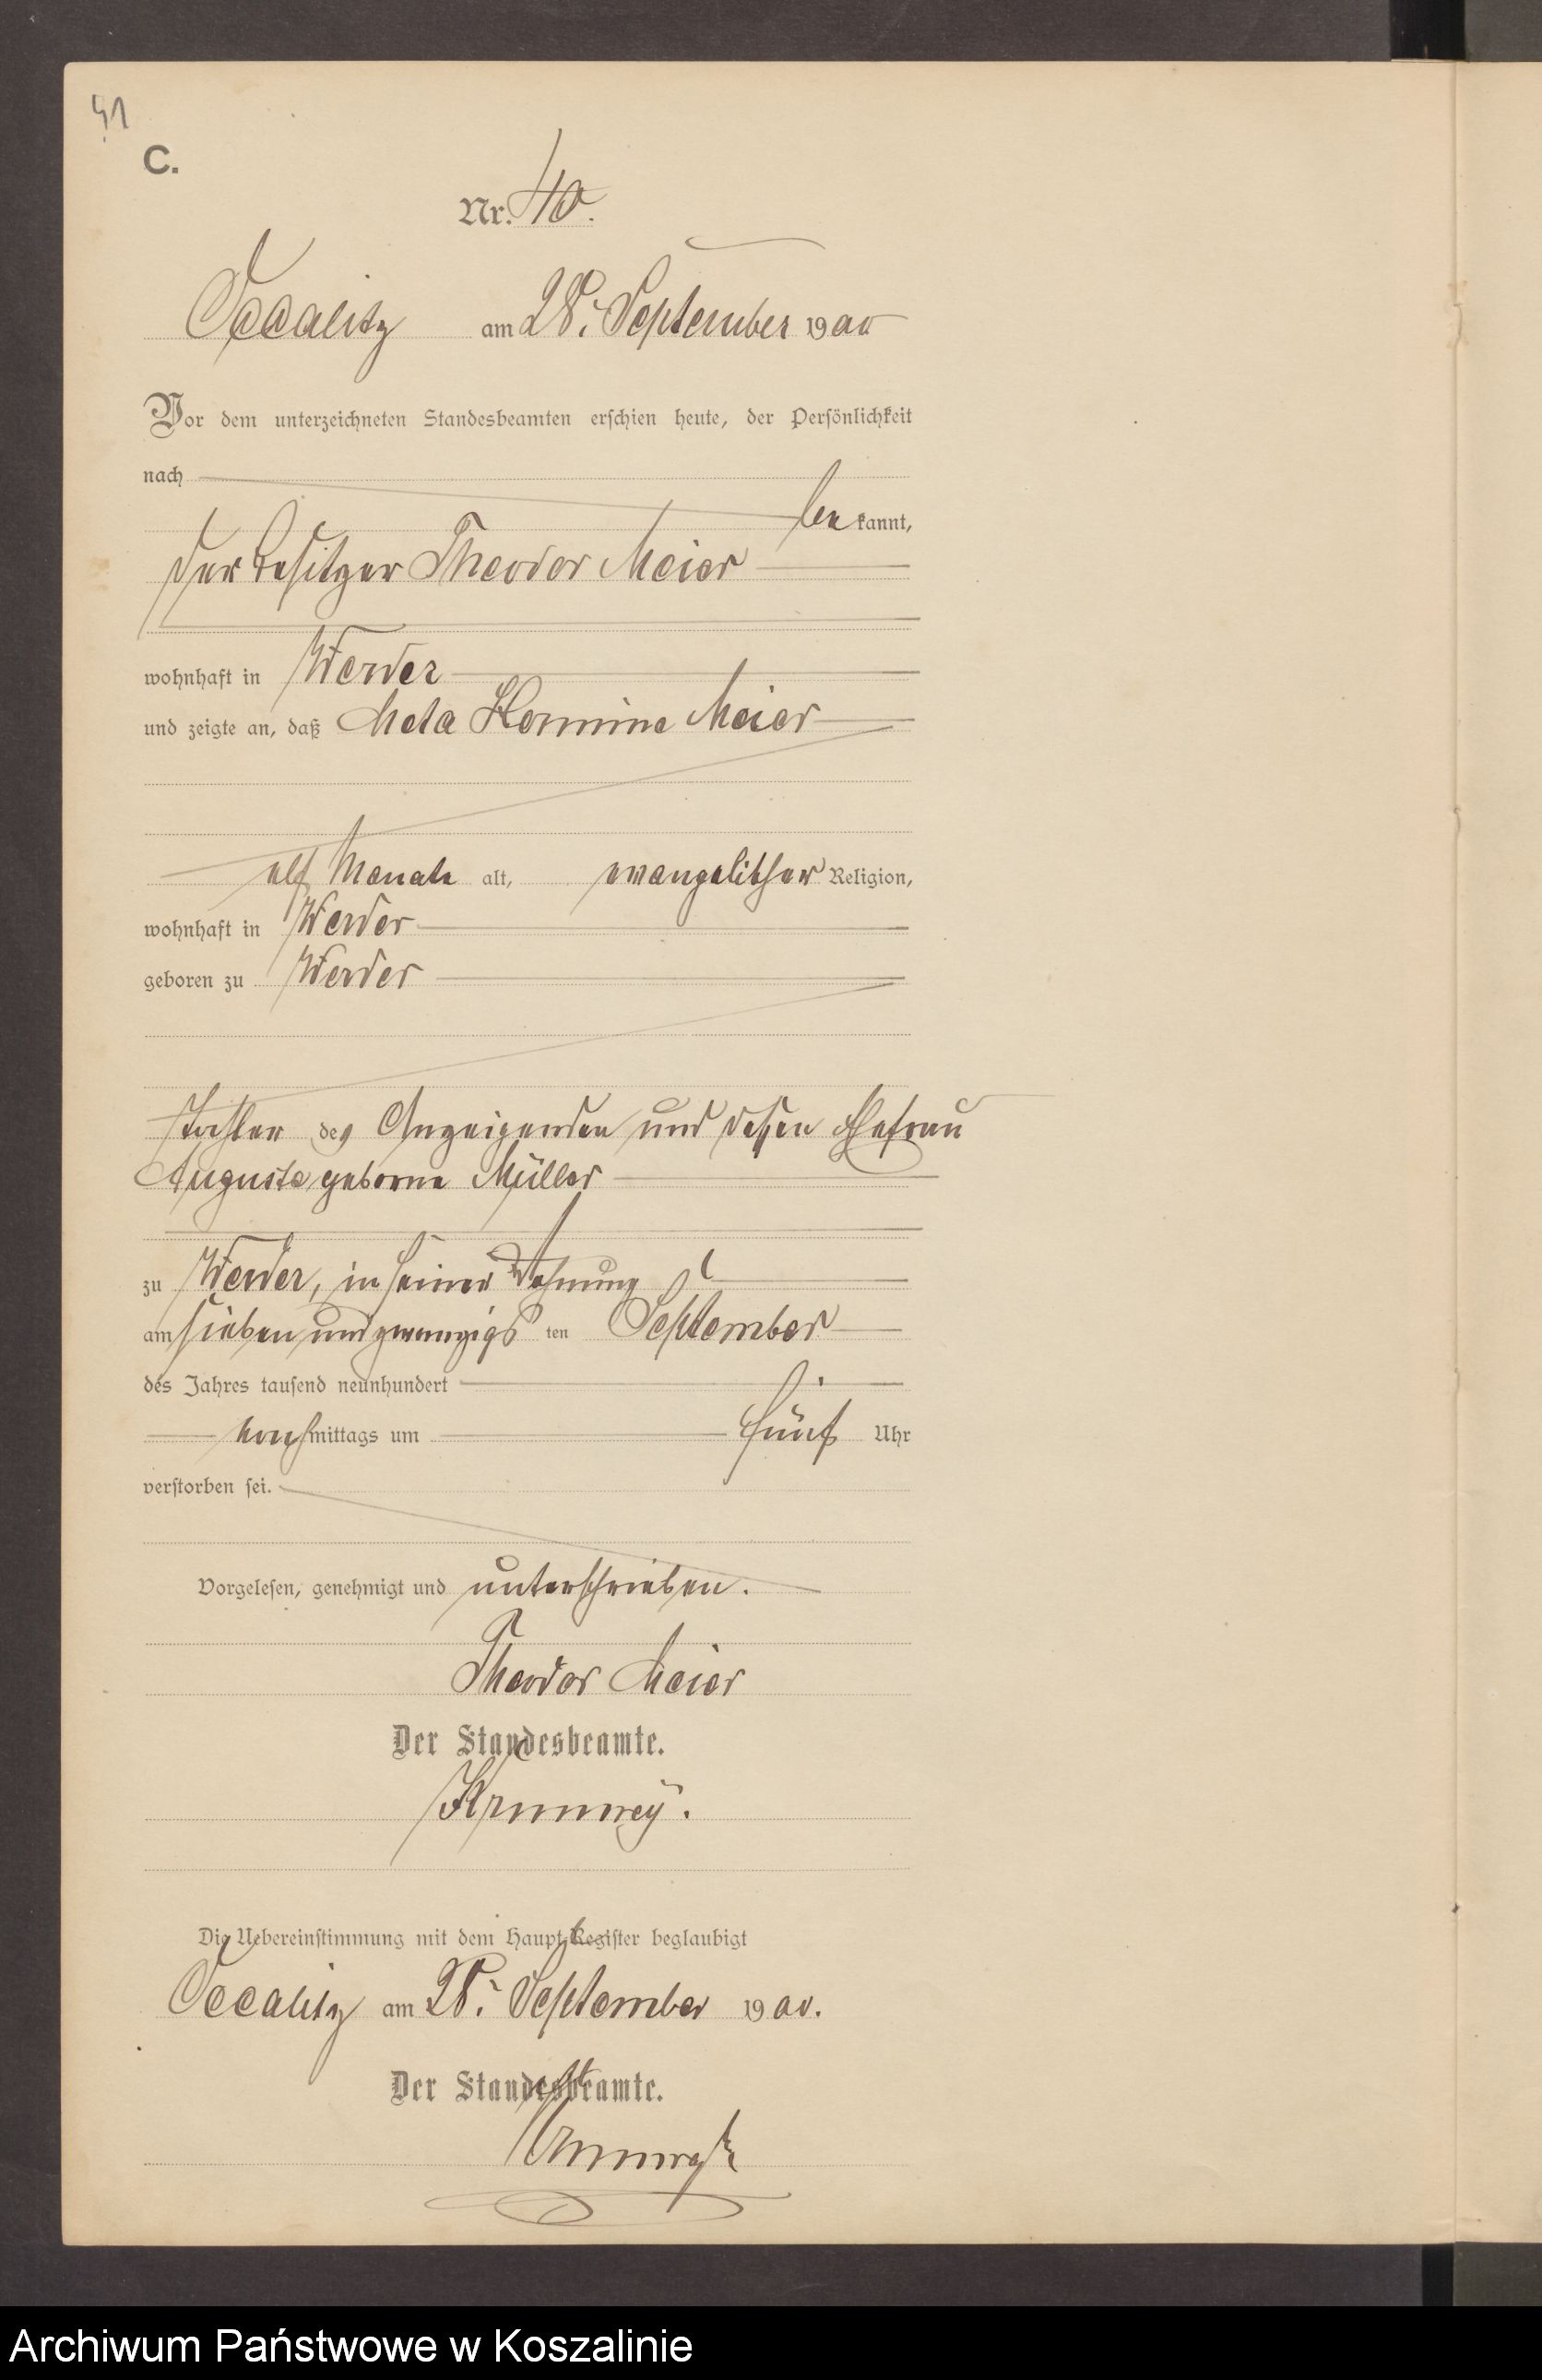 41
C.
Nr. 40.
Occalitz am 28. September 1900
Vor dem unterzeichneten Standesbeamten erschien heute, der Persönlichkeit
nach
bekannt,
der Besitzer Theodor Meier
wohnhaft in Werder
und zeigte an, daß Meta Hermine Meier
elf Monate alt, evangelischer Religion,
wohnhaft in Werder
geboren zu Werder
Tochter des Anzeigenden und dessen Ehefrau
Auguste geborne Müller
zu Werder, in seiner Wohnung
am sieben und zwanzigsten September
des Jahres tausend neunhundert
nachmittags um fünf Uhr
verstorben sei.
Vorgelesen, genehmigt und unterschrieben.
Theodor Meier
Der Standesbeamte.
Krummrey.
Die Uebereinstimmung mit dem Haupt-Register beglaubigt
Occalitz am 28. September 1900.
Der Standesbeamte.
Archiwum Państwowe w Koszalinie